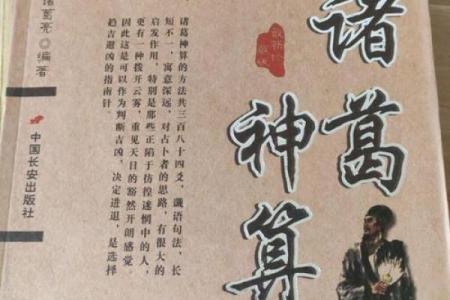 诸葛神算
诸葛神算的方法共三百八十四爻，谶语句法，长
短不一，寓意深远，对占卜者的思路，有很大的
启发作用，特别是那些正陷于彷徨迷惘中的人，
更有一种拨开云雾，重见天日的豁然开朗感觉
因此这是可以作为判断吉凶，决定进退，是选择
趋吉避凶的指南针。
诸葛亮 编著
中国长安出版社